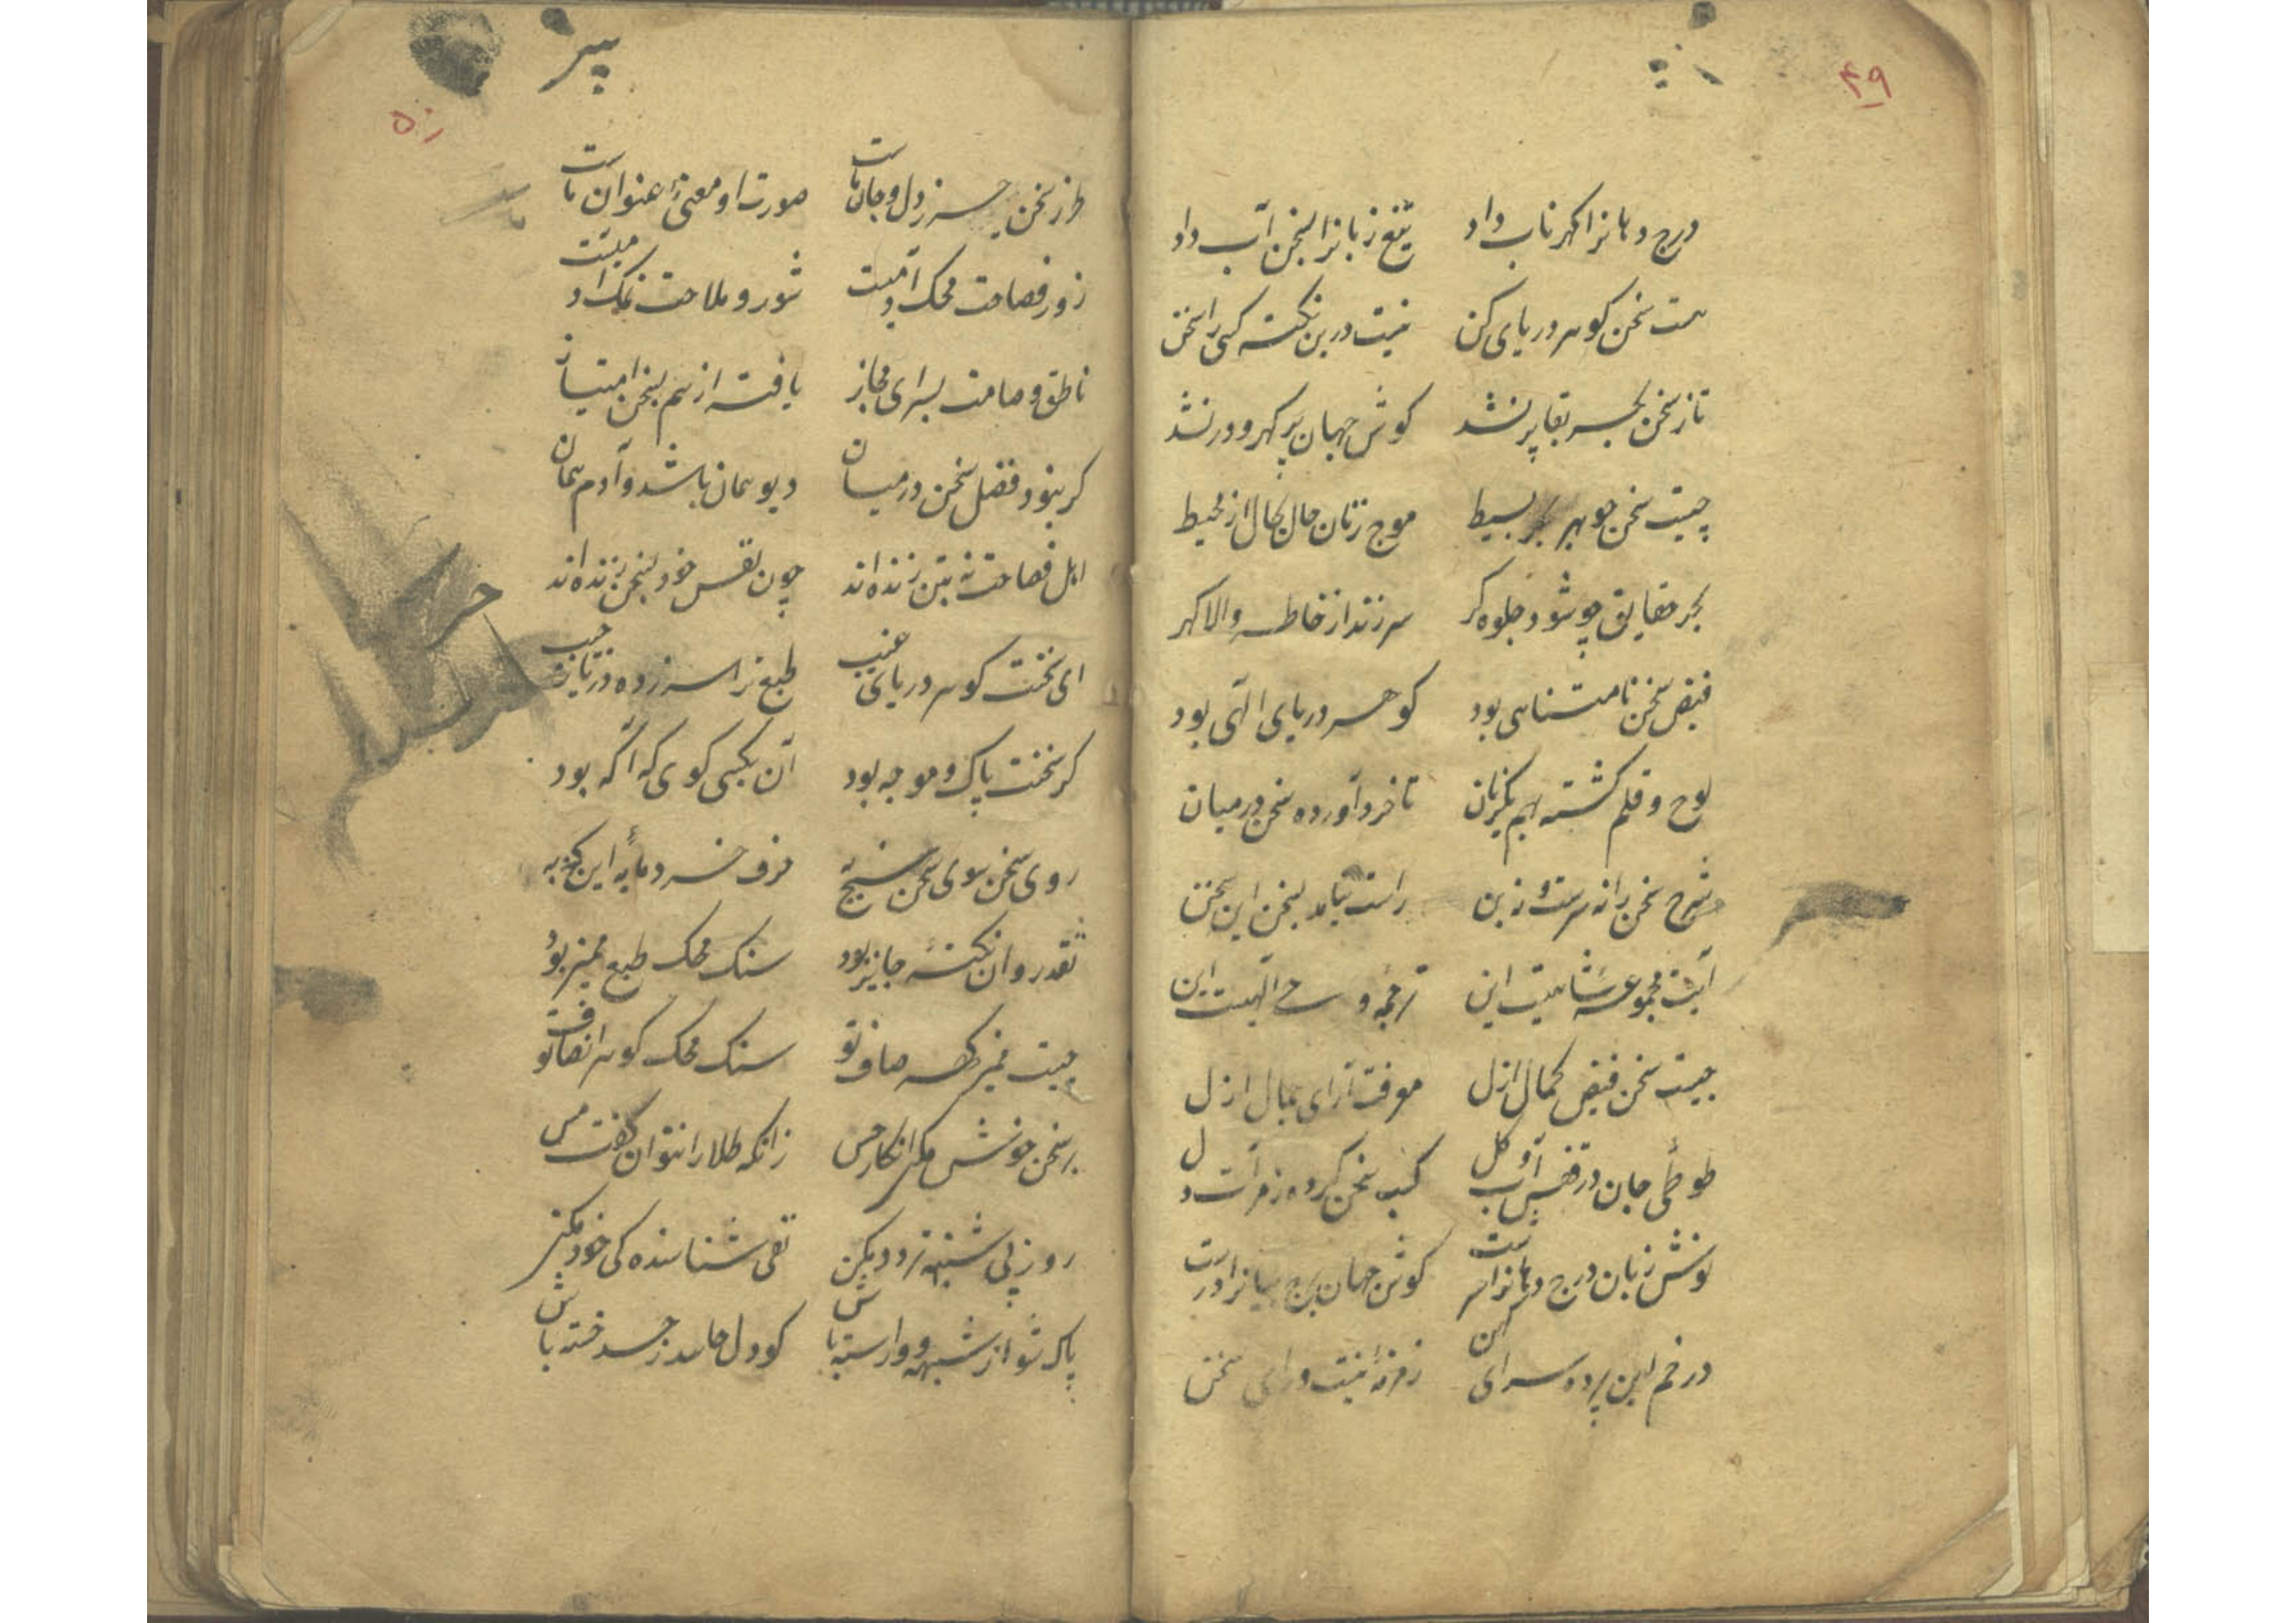 ۴۹
درج دهانرا کهر ناب داد تیغ زبانرا بسخن آب داد
هست سخن کوهر دریای کن نیست درین نکته کسی را سخن
تا ز سخن بحر بقا پر نشد کوش جهان پر کهر و در نشد
چیست سخن جوهر بحر بسیط موج زنان حال بحال از محیط
بحر حقایق چو شود جلوه کر سر زند از خاطر والا کهر
فیض سخن نامتناهی بود کوهر دریای الهی بود
لوح و قلم کشته بهم یکزبان تا خرد آورده سخن در میان
شرح سخن را نه سرست و نه بن راست نیاید بسخن این سخن
آیت مجموعه شاهیست این ترجمه وحی الهیست این
چیست سخن فیض کمال ازل معرفت آرای جمال ازل
طوطی جان در قفس آب و کل کسب سخن کرده ز مرآت دل
نوش زبان درج دهانرا سرست کوش جهان برج بیانرا درست
در خم این پرده سرای کهن زمزمه نیست ورای سخن
۵۰
پیر
طرز سخن حرز دل و جان ماست صورت او معنی عنوان ماست
زور فصاحت محک آدمیست شور و ملاحت نمک آدمیست
ناطق و صامت بسرای مجاز یافته از هم بسخن امتیاز
کر نبود فضل سخن در میان دیو همان باشد و آدم همان
اهل فصاحت نه بتن زنده اند چون نفس خود بسخن زنده اند
ای سخنت کوهر دریای غیب طبع ترا سر زده در تا ز جیب
کر سخنت پاک و موجه بود آن بکسی کوی که آکه بود
روی سخن سوی سخن سنج به صرف خرد مایه این کنج به
نقد روان نکته جایز بود سنک محک طبع ممیز بود
چیست ممیز کهر صاف تو سنک محک کوهر انصاف تو
بر سخن خوش مکن انکار حس زانکه طلا را نتوان کفت مس
روز پی شبهه تردد مکن نفی شناسنده کی خود مکن
پاک شو از شبهه و وارسته باش کو دل حاسد ز حسد خسته باش